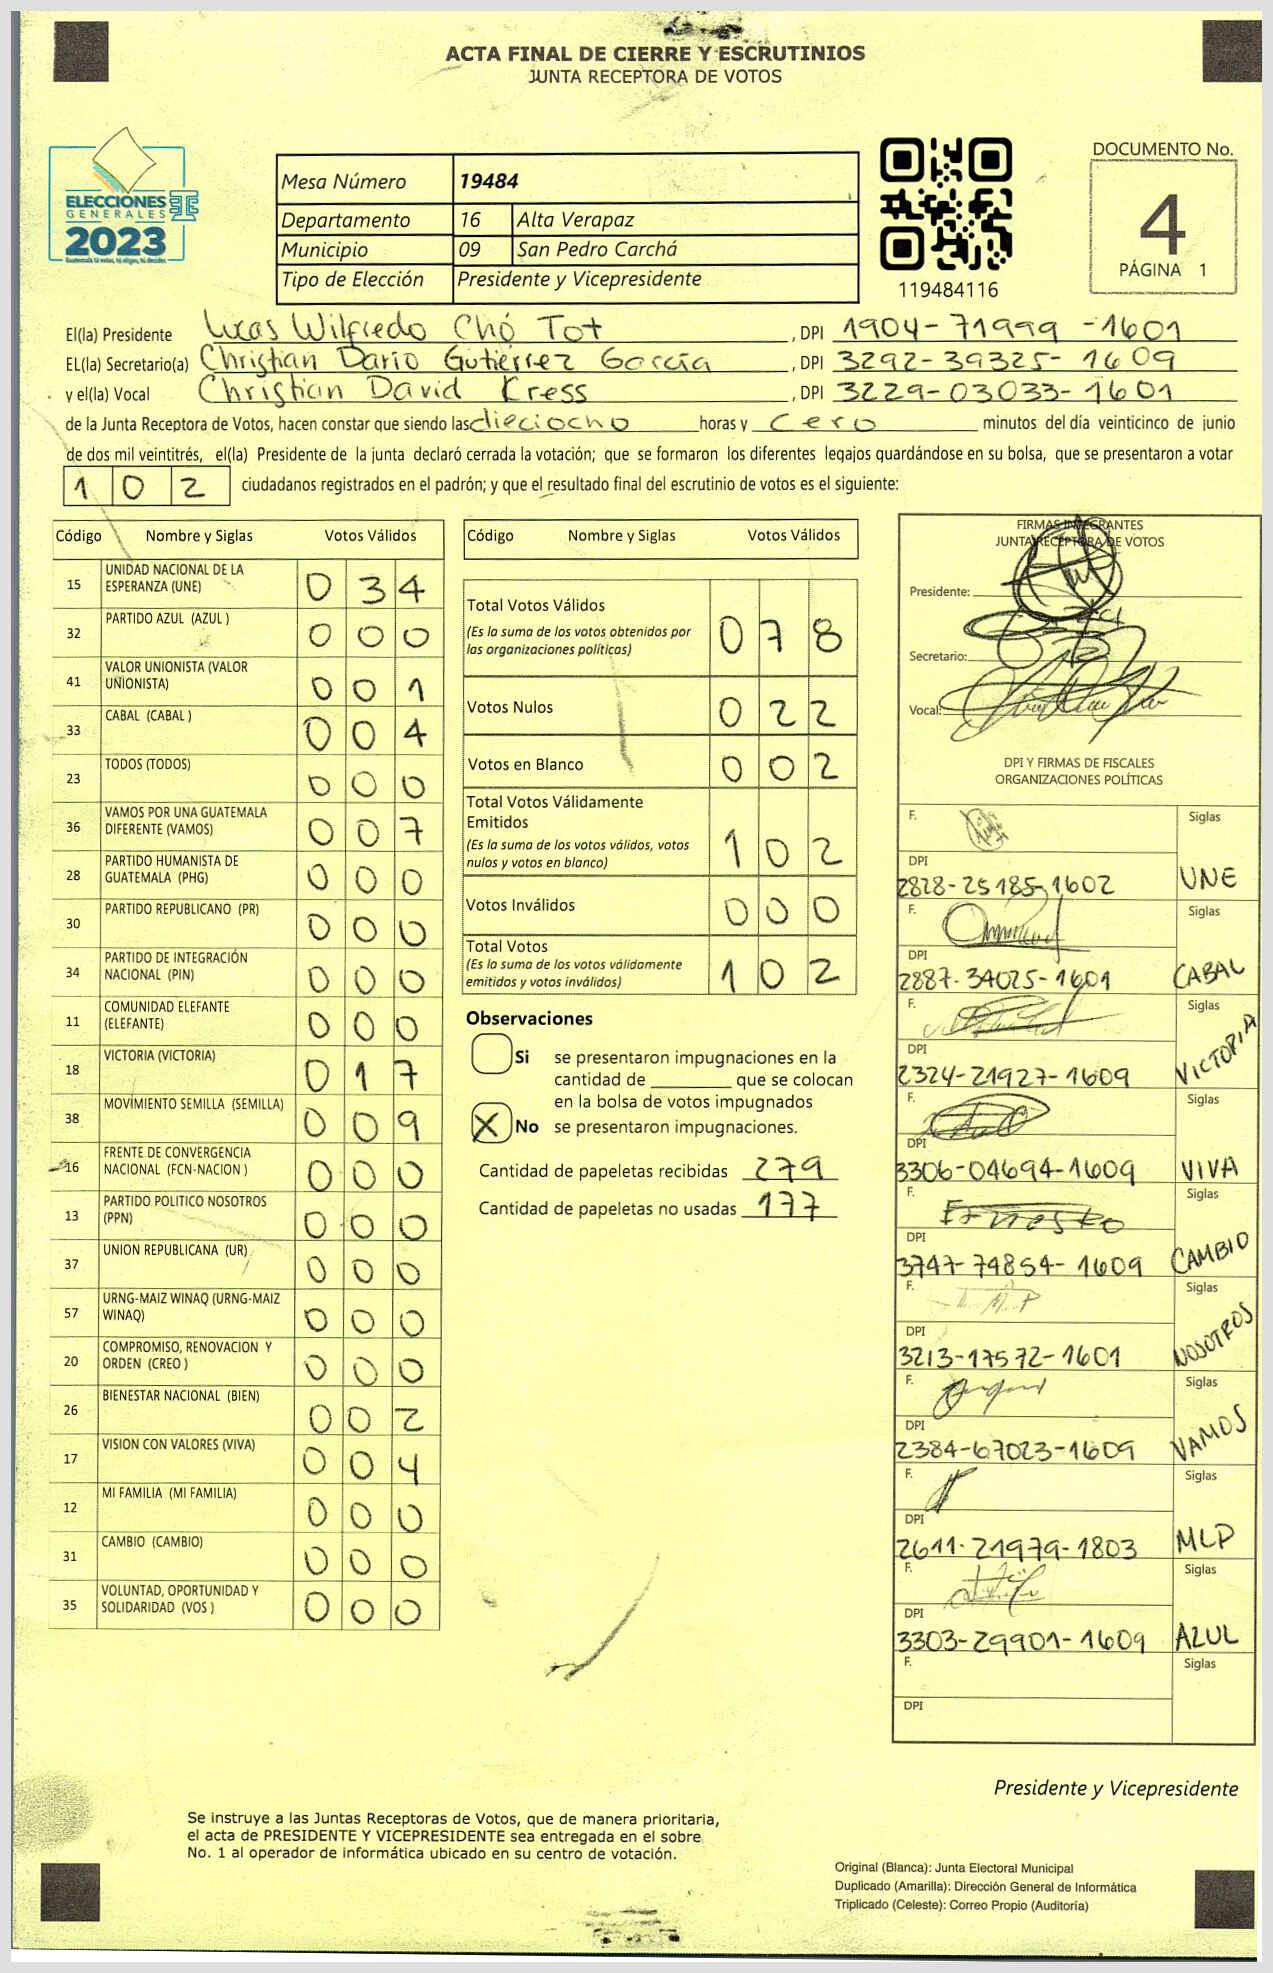 ACTA FINAL DE CIERRE Y ESCRUTINIOS
JUNTA RECEPTORA DE VOTOS
ELECCIONES
GENERALES
2023
Guatemala tú votas, tú eliges, tú decides
Mesa Número 19484
Departamento 16 Alta Verapaz
Municipio 09 San Pedro Carchá
Tipo de Elección Presidente y Vicepresidente
119484116
DOCUMENTO No.
4
PÁGINA 1
El(la) Presidente Lucas Wilfredo Chó Tot, DPI 1904-71999-1601
EL(la) Secretario(a) Christian Dario Gutiérrez García, DPI 3292-39325-1609
y el(la) Vocal Christian David Kress, DPI 3229-03033-1601
de la Junta Receptora de Votos, hacen constar que siendo las dieciocho horas y cero minutos del día veinticinco de junio
de dos mil veintitrés, el(la) Presidente de la junta declaró cerrada la votación; que se formaron los diferentes legajos quardándose en su bolsa, que se presentaron a votar
102 ciudadanos registrados en el padrón; y que el resultado final del escrutinio de votos es el siguiente:
Código Nombre y Siglas Votos Válidos
15 UNIDAD NACIONAL DE LA ESPERANZA (UNE) 034
32 PARTIDO AZUL (AZUL ) 000
41 VALOR UNIONISTA (VALOR UNIONISTA) 001
33 CABAL (CABAL ) 004
23 TODOS (TODOS) 000
36 VAMOS POR UNA GUATEMALA DIFERENTE (VAMOS) 007
28 PARTIDO HUMANISTA DE GUATEMALA (PHG) 000
30 PARTIDO REPUBLICANO (PR) 000
34 PARTIDO DE INTEGRACIÓN NACIONAL (PIN) 000
11 COMUNIDAD ELEFANTE (ELEFANTE) 000
18 VICTORIA (VICTORIA) 017
38 MOVIMIENTO SEMILLA (SEMILLA) 009
16 FRENTE DE CONVERGENCIA NACIONAL (FCN-NACION ) 000
13 PARTIDO POLITICO NOSOTROS (PPN) 000
37 UNION REPUBLICANA (UR) 000
57 URNG-MAIZ WINAQ (URNG-MAIZ WINAQ) 000
20 COMPROMISO, RENOVACION Y ORDEN (CREO ) 000
26 BIENESTAR NACIONAL (BIEN) 002
17 VISION CON VALORES (VIVA) 004
12 MI FAMILIA (MI FAMILIA) 000
31 CAMBIO (CAMBIO) 000
35 VOLUNTAD, OPORTUNIDAD Y SOLIDARIDAD (VOS ) 000
Código Nombre y Siglas Votos Válidos
Total Votos Válidos 078
(Es la suma de los votos obtenidos por
las organizaciones políticas)
Votos Nulos 022
Votos en Blanco 002
Total Votos Válidamente
Emitidos 102
(Es la suma de los votos válidos, votos
nulos y votos en blanco)
Votos Inválidos 000
Total Votos 102
(Es la suma de los votos válidamente
emitidos y votos inválidos)
Observaciones
Si se presentaron impugnaciones en la
cantidad de ________ que se colocan
en la bolsa de votos impugnados
X No se presentaron impugnaciones.
Cantidad de papeletas recibidas 279
Cantidad de papeletas no usadas 177
FIRMAS INTEGRANTES
JUNTA RECEPTORA DE VOTOS
Presidente:
Secretario:
Vocal:
DPI Y FIRMAS DE FISCALES
ORGANIZACIONES POLÍTICAS
F. Siglas
DPI
2828-25185-1602 UNE
F. Siglas
DPI
2887-34025-1601 CABAL
F. Siglas
DPI
2324-21927-1609 VICTORIA
F. Siglas
DPI
3306-04694-1609 VIVA
F. Ernesto Siglas
DPI
3747-74854-1609 CAMBIO
F. Siglas
DPI
3213-17572-1601 NOSOTROS
F. Siglas
DPI
2384-67023-1609 VAMOS
F. Siglas
DPI
2611-21979-1803 MLP
F. Siglas
DPI
3303-29901-1609 AZUL
F. Siglas
DPI
Presidente y Vicepresidente
Se instruye a las Juntas Receptoras de Votos, que de manera prioritaria,
el acta de PRESIDENTE Y VICEPRESIDENTE sea entregada en el sobre
No. 1 al operador de informática ubicado en su centro de votación.
Original (Blanca): Junta Electoral Municipal
Duplicado (Amarilla): Dirección General de Informática
Triplicado (Celeste): Correo Propio (Auditoría)